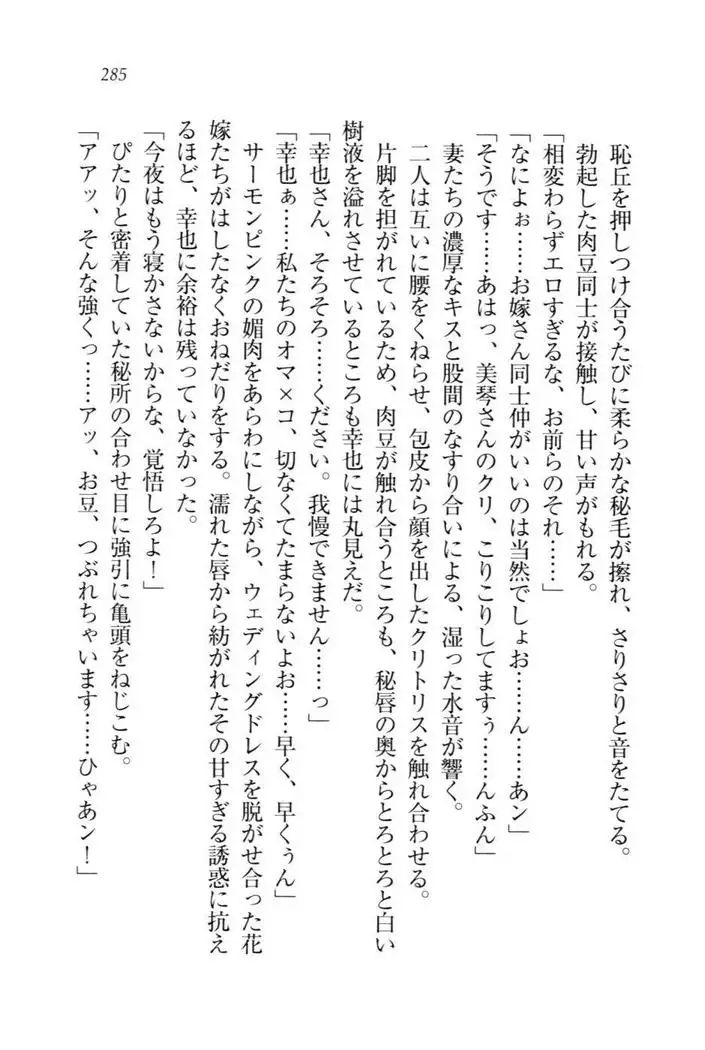 285
恥丘を押しつけ合うたびに柔らかな秘毛が擦れ、さりさりと音をたてる。
勃起した肉豆同士が接触し、甘い声がもれる。
「相変わらずエロすぎるな、お前らのそれ……」
「なによぉ……お嫁さん同士仲がいいのは当然でしょお……ん……あン」
「そうです……あはっ、美琴さんのクリ、こりこりしてますぅ……んふん」
妻たちの濃厚なキスと股間のなすり合いによる、湿った水音が響く。
二人は互いに腰をくねらせ、包皮から顔を出したクリトリスを触れ合わせる。
片脚を担がれているため、肉豆が触れ合うところも、秘唇の奥からとろとろと白い
樹液を溢れさせているところも幸也には丸見えだ。
「幸也さん、そろそろ……ください。我慢できません……っ」
「幸也ぁ……私たちのオマ×コ、切なくてたまらないよお……早く、早くぅん」
サーモンピンクの媚肉をあらわにしながら、ウェディングドレスを脱がせ合った花
嫁たちがはしたなくおねだりをする。濡れた唇から紡がれたその甘すぎる誘惑に抗え
るほど、幸也に余裕は残っていなかった。
「今夜はもう寝かさないからな、覚悟しろよ！」
ぴたりと密着していた秘所の合わせ目に強引に亀頭をねじこむ。
「アアッ、そんな強くっ……アッ、お豆、つぶれちゃいます……ひゃあン！」